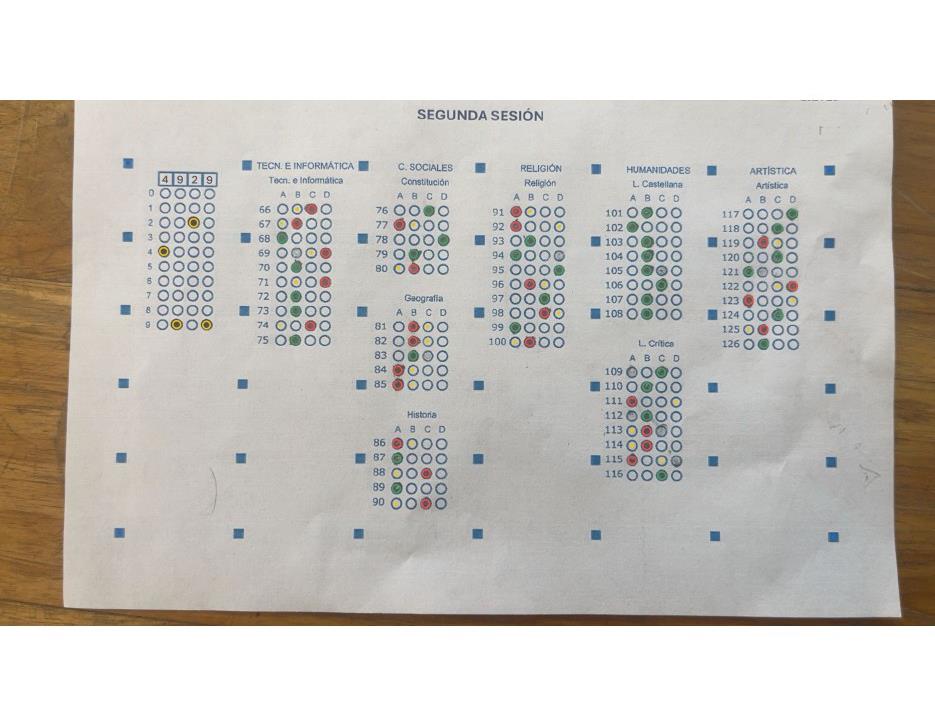 SEGUNDA SESIÓN
4 9 2 9
0
1
2
3
4
5
6
7
8
9
TECN. E INFORMÁTICA
Tecn. e Informática
A B C D
66
67
68
69
70
71
72
73
74
75
C. SOCIALES
Constitución
A B C D
76
77
78
79
80
Geografía
A B C D
81
82
83
84
85
Historia
A B C D
86
87
88
89
90
RELIGIÓN
Religión
A B C D
91
92
93
94
95
96
97
98
99
100
HUMANIDADES
L. Castellana
A B C D
101
102
103
104
105
106
107
108
L. Crítica
A B C D
109
110
111
112
113
114
115
116
ARTÍSTICA
Artística
A B C D
117
118
119
120
121
122
123
124
125
126